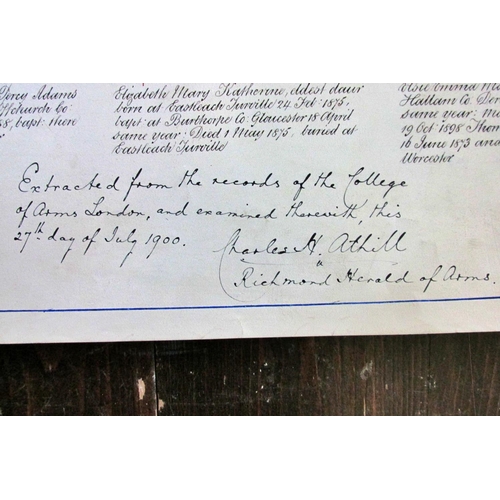 Percy Adams
church Co:
8, bapt: there
Elizabeth Mary Katherine, eldest daur
born at Eastleach Turville 24 Feb: 1875,
bapt: at Barthorpe Co: Gloucester 18 April
same year: Died 1 May 1875, buried at
Eastleach Turville
Emma
Hallam Co. Der
same year: M
19 Oct: 1898 Tho
16 June 1873 and
Worcester
Extracted from the records of the College
of Arms London, and examined therewith, this
27th day of July 1900.
Charles H. Athill
Richmond Herald of Arms.